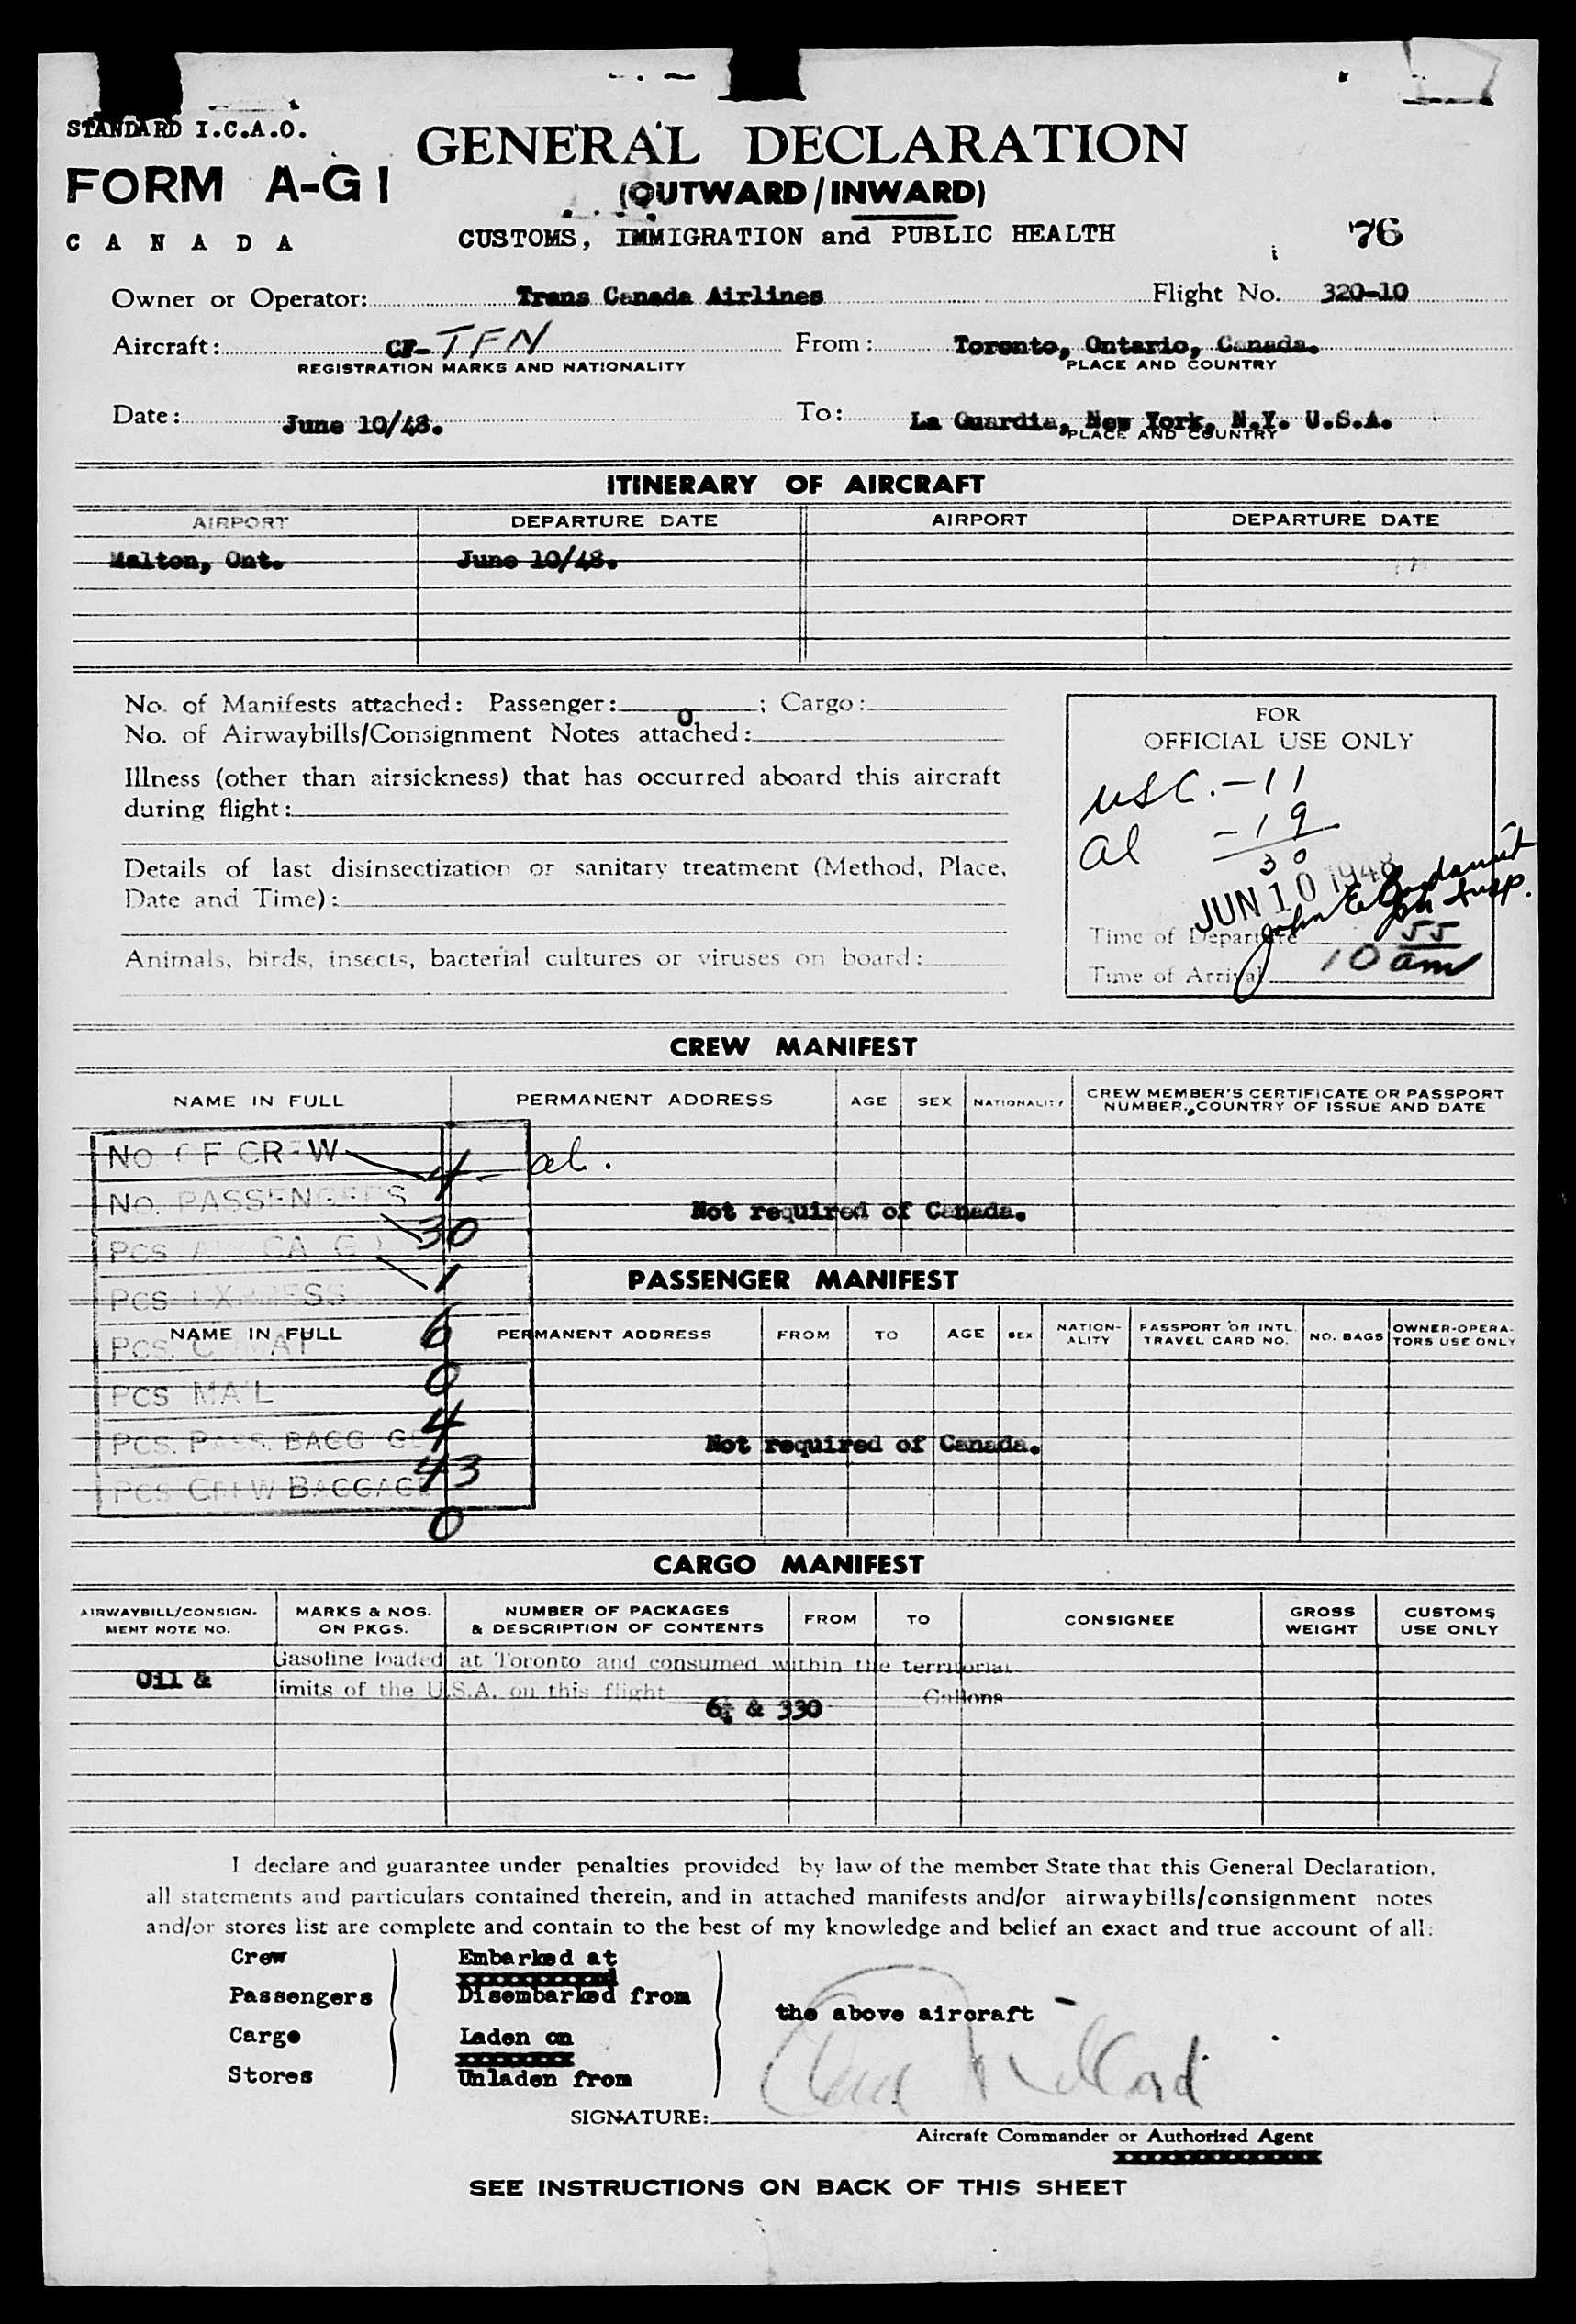 STANDARD I.C.A.O.
FORM A-G1
CANADA
GENERAL DECLARATION
(OUTWARD/INWARD)
CUSTOMS, IMMIGRATION and PUBLIC HEALTH
76
Owner or Operator: Trans Canada Airlines Flight No. 320-10
Aircraft: CF-TFN From: Toronto, Ontario, Canada.
REGISTRATION MARKS AND NATIONALITY PLACE AND COUNTRY
Date: June 10/48. To: La Guardia, New York, N.Y. U.S.A.
PLACE AND COUNTRY
ITINERARY OF AIRCRAFT
AIRPORT DEPARTURE DATE AIRPORT DEPARTURE DATE
Malton, Ont. June 10/48.
No. of Manifests attached: Passenger: ; Cargo:
0
No. of Airwaybills/Consignment Notes attached:
Illness (other than airsickness) that has occurred aboard this aircraft
during flight:
Details of last disinsectization or sanitary treatment (Method, Place,
Date and Time):
Animals, birds, insects, bacterial cultures or viruses on board:
FOR
OFFICIAL USE ONLY
USC. - 11
al - 19
30
JUN 10 1948
John E.
Insp.
Time of Departure
Time of Arrival 10 55 am
CREW MANIFEST
NAME IN FULL PERMANENT ADDRESS AGE SEX NATIONALITY CREW MEMBER'S CERTIFICATE OR PASSPORT
NUMBER, COUNTRY OF ISSUE AND DATE
NO OF CREW 4 - al.
NO. PASSENGERS 30
Not required of Canada.
PCS AIR CARGO 1
PCS EXPRESS 6
PCS. COMAT 0
PCS MAIL 4
PCS. PASS. BAGGAGE 43
PCS CREW BAGGAGE 0
PASSENGER MANIFEST
NAME IN FULL PERMANENT ADDRESS FROM TO AGE SEX NATION-
ALITY PASSPORT OR INTL.
TRAVEL CARD NO. NO. BAGS OWNER-OPERA-
TORS USE ONLY
Not required of Canada.
CARGO MANIFEST
AIRWAYBILL/CONSIGN-
MENT NOTE NO. MARKS & NOS.
ON PKGS. NUMBER OF PACKAGES
& DESCRIPTION OF CONTENTS FROM TO CONSIGNEE GROSS
WEIGHT CUSTOMS
USE ONLY
Oil & Gasoline loaded at Toronto and consumed within the territorial
limits of the U.S.A. on this flight 6¼ & 330 Gallons
I declare and guarantee under penalties provided by law of the member State that this General Declaration,
all statements and particulars contained therein, and in attached manifests and/or airwaybills/consignment notes
and/or stores list are complete and contain to the best of my knowledge and belief an exact and true account of all:
Crew Embarked at
Passengers Disembarked from
the above aircraft
Cargo Laden on
Stores Unladen from
SIGNATURE:
Aircraft Commander or Authorized Agent
SEE INSTRUCTIONS ON BACK OF THIS SHEET